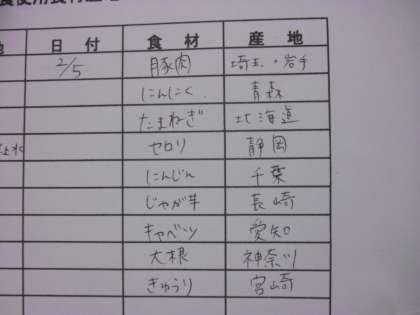 食使用食材産地
地 日付 食材 産地
2/5 豚肉 埼玉・岩手
にんにく 青森
たまねぎ 北海道
セロリ 静岡
にんじん 千葉
じゃが芋 長崎
キャベツ 愛知
大根 神奈川
きゅうり 宮崎